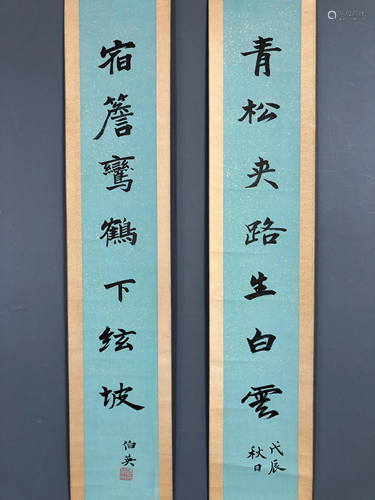 青松夹路生白雲
戊辰
秋日
宿簷鸞鶴下絃坡
伯英